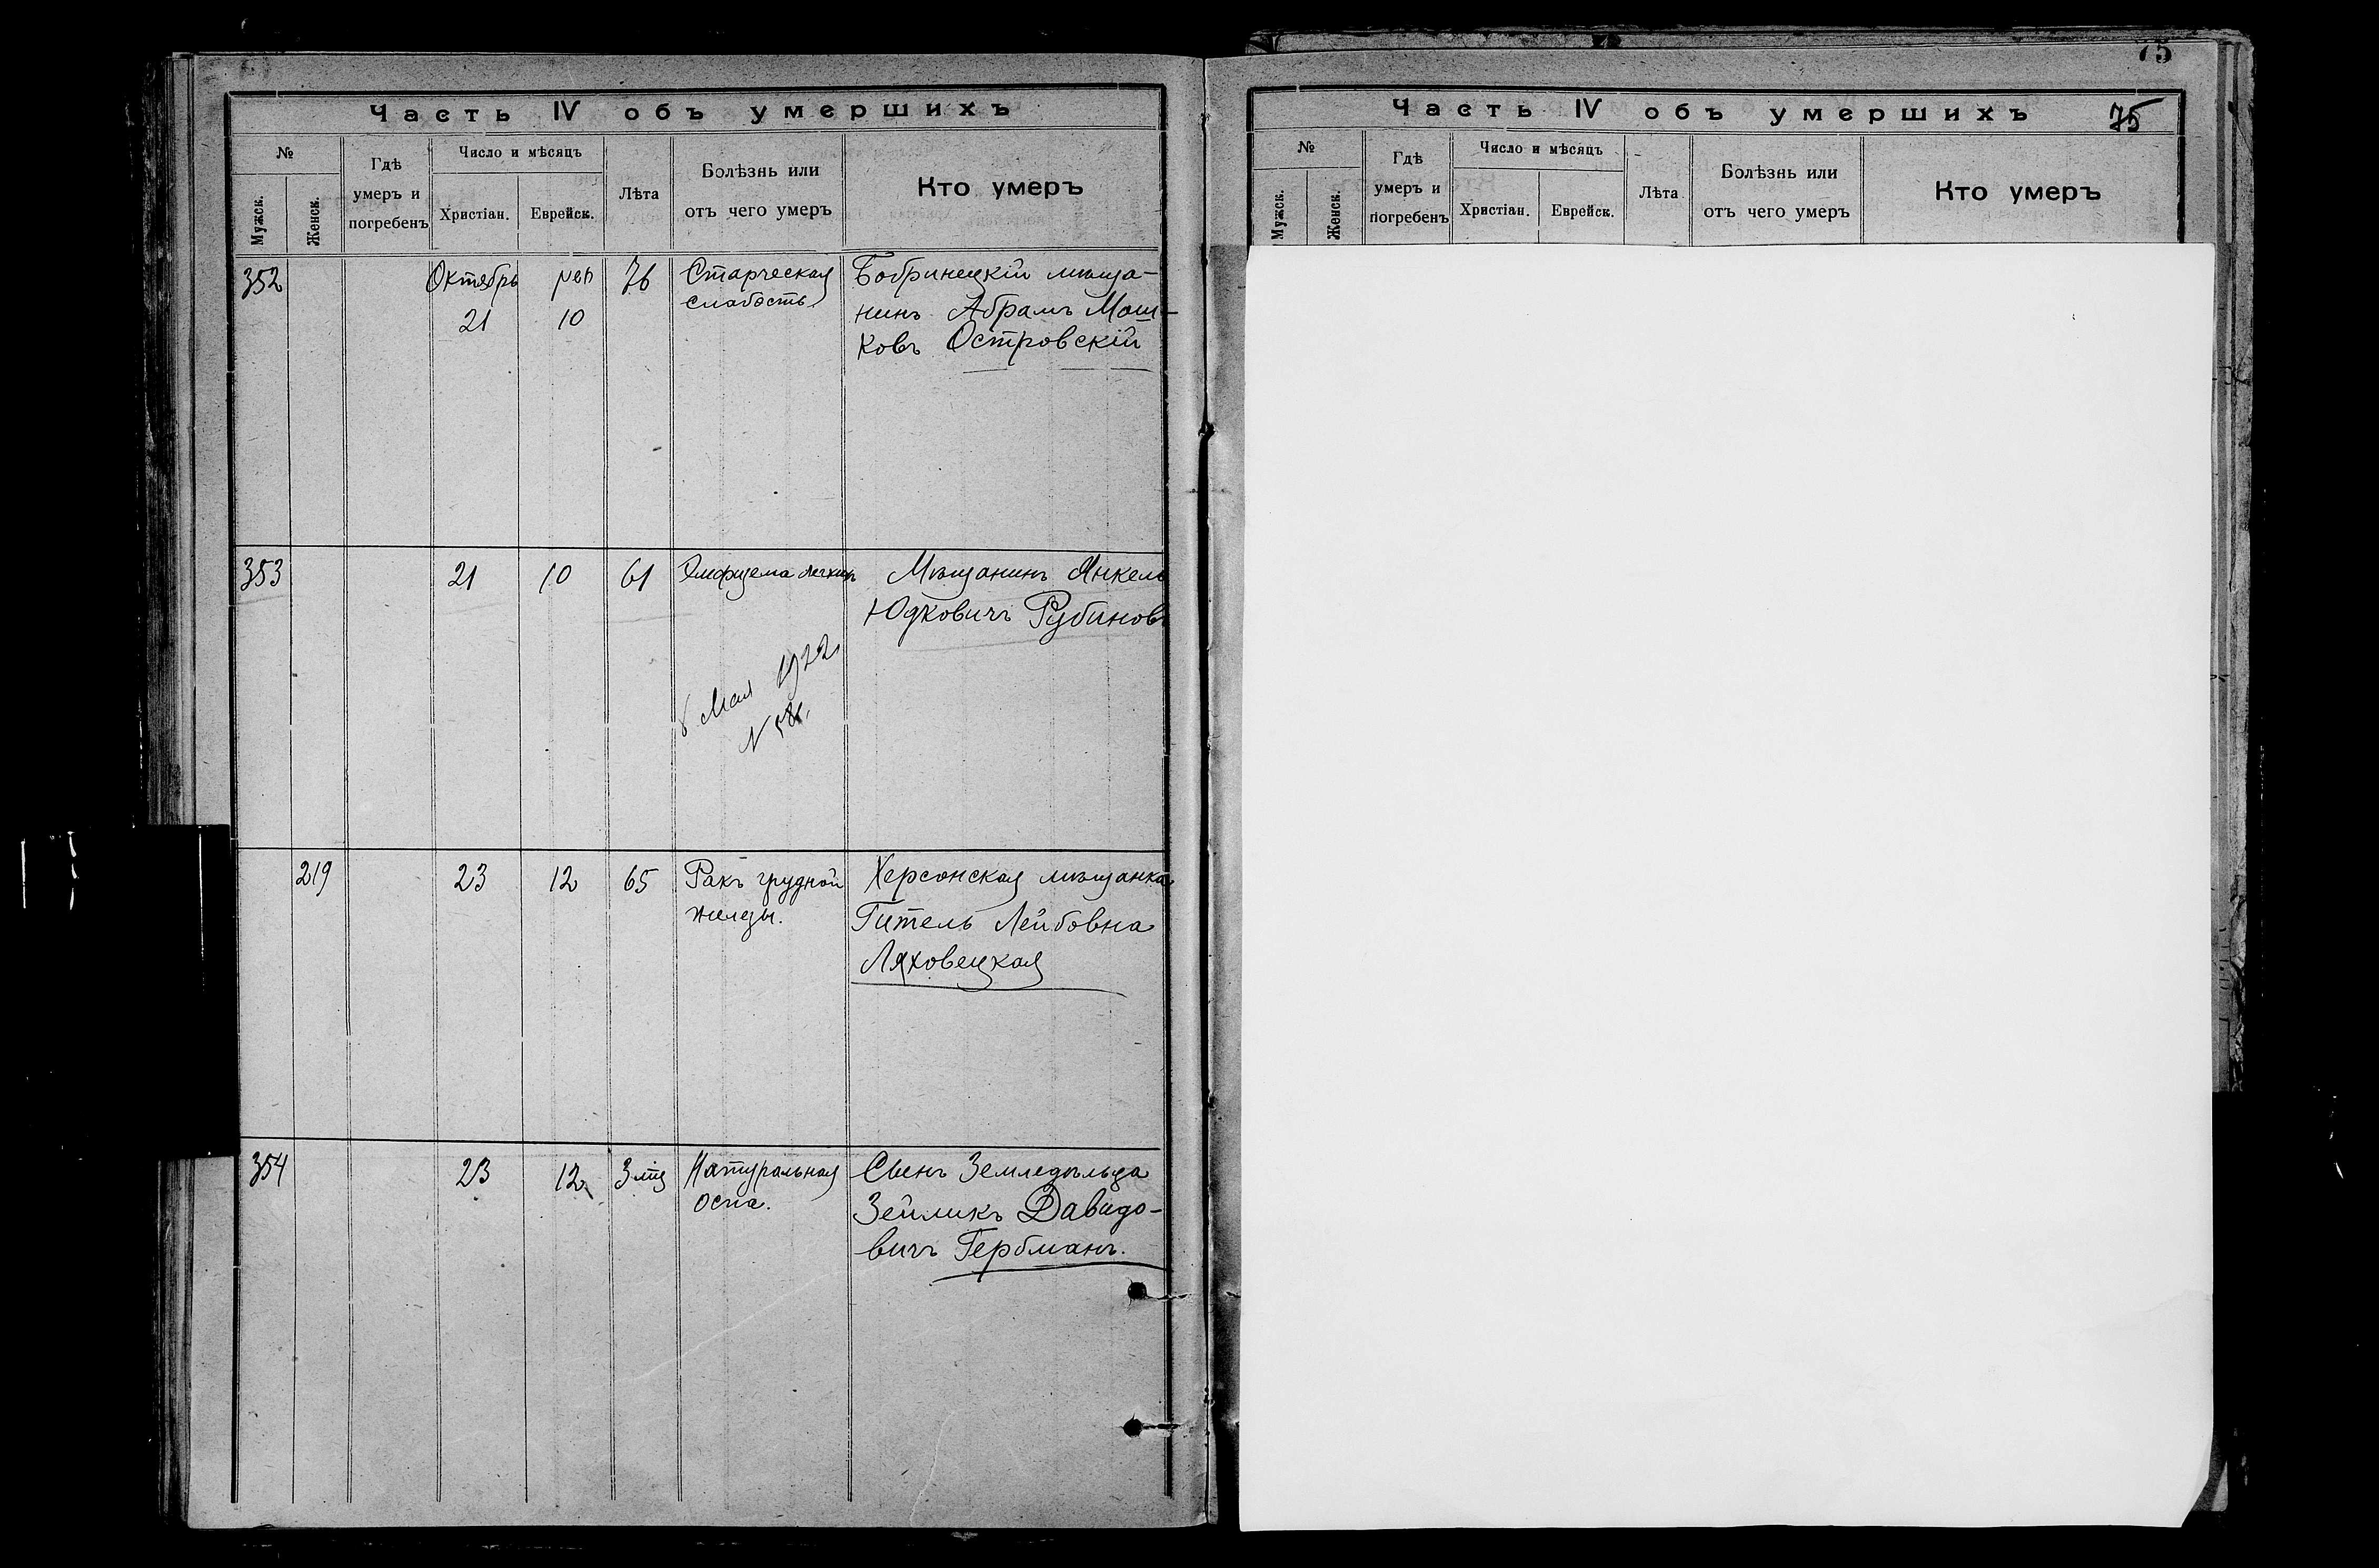 Часть IV объ умершихъ
№
Мужск.
Женск.
Гдѣ
умеръ и
погребенъ
Число и мѣсяцъ
Христіан.
Еврейск.
Лѣта
Болѣзнь или
отъ чего умеръ
Кто умеръ
352
Октябрь
21
10
76
Старческая
слабость
Бобринецкій мѣща-
нинъ Абрамъ Мош-
ковъ Островскій
353
21
10
61
Эмфизема легкихъ
Мѣщанинъ Янкель
Юдковичъ Рубиновъ
8 Мая 1922
219
23
12
65
Ракъ грудной
железы.
Херсонская мѣщанка
Гитель Лейбовна
Ляховецкая
354
23
12
Натуральная
оспа.
Сынъ Земледѣльца
Зейликъ Давидо-
вичъ Гербманъ.
75
Часть IV объ умершихъ
75
№
Мужск.
Женск.
Гдѣ
умеръ и
погребенъ
Число и мѣсяцъ
Христіан.
Еврейск.
Лѣта
Болѣзнь или
отъ чего умеръ
Кто умеръ